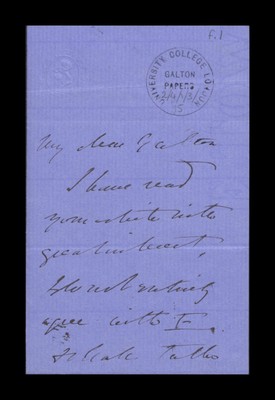 F.1
UNIVERSITY COLLEGE LONDON
GALTON
PAPERS
My dear Galton
I have read
your article with
great interest,
agree with
talks